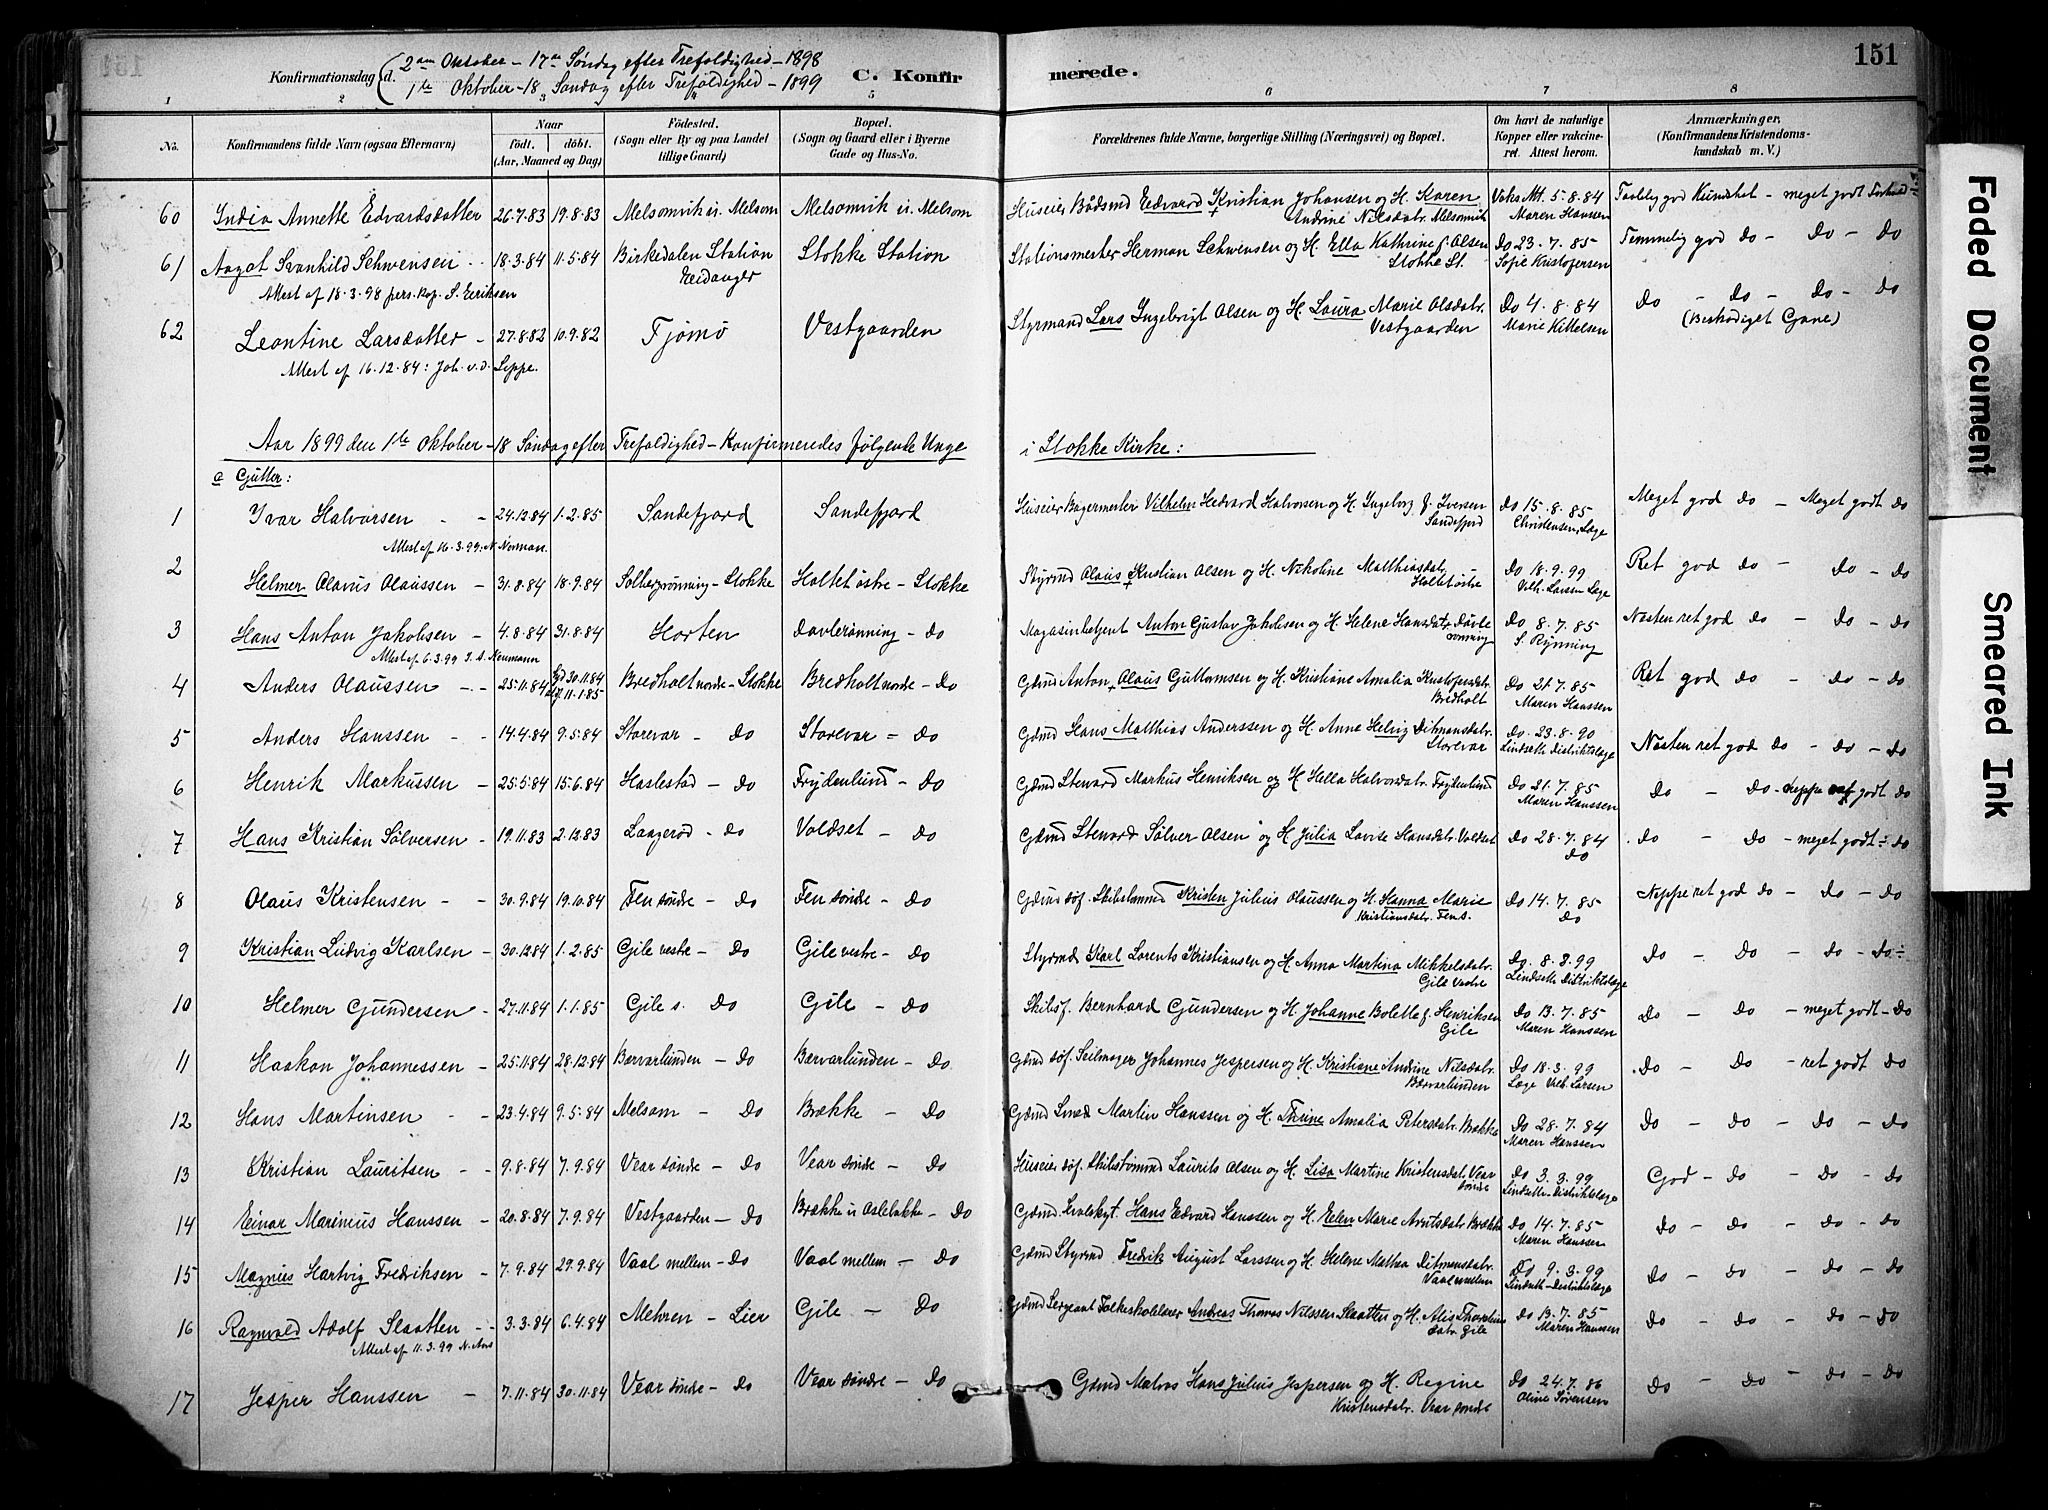 151
Konfirmationsdag d. 2den Oktober - 17de Søndag efter Trefoldighed - 1898
1ste Oktober - 18 Søndag efter Trefoldighed - 1899
C. Konfirmerede.
1 2 3 4 5 6 7 8
No. Konfirmandens fulde Navn (ogsaa Efternavn) Naar født. døbt. (Aar, Maaned og Dag) Fødested. (Sogn eller By og paa Landet tillige Gaard) Bopæl. (Sogn og Gaard eller i Byerne Gade og Hus-No. Forældrenes fulde Navne, borgerlige Stilling (Næringsvei) og Bopæl. Om havt de naturlige Kopper eller vakcineret. Attest herom. Anmærkninger. (Konfirmandens Kristendomskundskab m. V.)
60 India Annette Edvardsdatter 26.7.83 19.8.83 Melsomvik u. Melsom Melsomvik u. Melsom Huseier Bådsmd Edvard Kristian Johansen og H. Karen Andrine Nilsdatr. Melsomvik Vaks Att. 5.8.84 Maren Hanssen god Kundskab - meget godt Forhold
61 Aagot Svanhild Schwensen 18.3.84 11.5.84 Birkedalen Station Eidanger Stokke Station Stationsmester Herman Schwensen og H. Ella Kathrine f. Olsen Stokke St. Do 23.7.85 Sofie Kristofersen Temmelig god do - do - do
Attest af 18.3.98 pers. kap. S. Eriksen
62 Leontine Larsdatter - 27.8.82 10.9.82 Tjømø Vestgaarden Styrmand Lars Ingebrigt Olsen og H. Laura Marie Olsdatr. Vestgaarden Do 4.8.84 Marie Kittelsen Do - do - do - do (Beskadiget Gane)
Attest af 16.12.84: Joh. v.d. Lippe.
Aar 1899 den 1ste Oktober - 18 Søndag efter Trefoldighed - Konfirmeredes følgende Unge i Stokke Kirke:
a Gutter:
1 Ivar Halvorsen - - 24.12.84 1.2.85 Sandefjord Sandefjord Huseier Bagermester Vilhelm Hedvard Halvorsen og H. Ingeborg f. Iversen Sandefjord Do 15.8.85 Christensen, Læge Meget god do - Meget godt do
Attest af 16.3.99: N. Norman.
2 Helmer Olavus Olaussen - 31.8.84 18.9.84 Solbergrønning - Stokke Holtet østre - Stokke Styrmd Olaus Kristian Olsen og H. Nikoline Matthiasdatr. Holtet østre Do 18.9.99 Vilh. Larsen Læge Ret god do - do - do
3 Hans Anton Jakobsen - 4.8.84 31.8.84 Horten Davlerønning - do Magasinbetjent Anton Gustav Jakobsen og H. Helene Hansdatr. Davlerønning Do 8.7.85 S. Rynning Næsten ret god do - do - do
Attest af 6.3.99 J. A. Neumann
4 Anders Olaussen - - 25.11.84 Gd 30.11.84 11.1.85 Bredholt nordre - Stokke Bredholt nordre - do Gdmd Anton Olaus Guttormsen og H. Kristiane Amalia Kristofersdatr. Bredholt Do 21.7.85 Maren Hanssen Ret god do - do - do
5 Anders Hanssen - - 14.4.84 9.5.84 Storevar - do Storevar - do Gdmd Hans Matthias Anderssen og H. Anne Helvig Ditmansdatr. Storevar Do 23.8.90 Lindseth Distriktslæge Næsten ret god do - do - do
6 Henrik Markussen - 25.5.84 15.6.84 Haslestad - do Frydenlund - do Gdmd Steward Markus Henriksen og H. Hella Halvorsdatr. Frydenlund Do 21.7.85 Maren Hanssen do - do - neppe ret godt do
7 Hans Kristian Sølversen - 19.11.83 2.12.83 Laagerød - do Voldset - do Gdmd Steward Sølver Olsen og H. Julia Lovise Hansdatr. Voldset Do 28.7.84 do do - do - meget godt - do
8 Olaus Kristensen - - 30.9.84 19.10.84 Fen søndre - do Fen søndre - do Gdmd søf. Skibstømmd Kristen Julius Olaussen og H. Hanna Marie Kristiansdatr. Fen s. Do 14.7.85 do Neppe ret god do - do - do
9 Kristian Ludvig Karlsen - 30.12.84 1.2.85 Gile vestre - do Gile vestre - do Styrmd Karl Lorents Kristiansen og H. Anna Martina Mikkelsdatr. Gile vestre Do. 8.8.99 Lindseth Distriktslæge do - do - do - do
10 Helmer Gundersen - 27.11.84 1.1.85 Gile s. do Gile - do Skibsf. Bernhard Gundersen og H. Johanne Bolette f. Henriksen Gile Do 13.7.85 Maren Hanssen do - do - meget godt - do
11 Haakon Johannessen - 25.11.84 28.12.84 Bærvarlunden - do Bærvarlunden - do Gdmd søf. Seilmager Johannes Jespersen og H. Kristiane Andrine Nilsdatr. Bærvarlunden Do 18.3.99 Læge Vilh. Larsen do - do - ret godt do
12 Hans Martinsen - - 23.4.84 9.5.84 Melsom - do Brække - do Gdmd Smed Martin Hanssen og H. Thrine Amalia Petersdatr. Brække Do 28.7.84 Maren Hanssen do - do - do - do
13 Kristian Lauritsen - - 9.8.84 7.9.84 Vear søndre - do Vear søndre - do Huseier søf. Skibstømmd Laurits Olsen og H. Lisa Martine Kristensdatr. Vear søndre Do 3.3.99 Lindseth - Distriktslæge God - do - do - do
14 Einar Marinius Hanssen - 20.8.84 7.9.84 Vestgaarden - do Brække u Aslebakke - do Gdmd. Hvalskyt. Hans Edvard Hanssen og H. Elen Marie Arntsdatr. Brække Do 14.7.85 Maren Hanssen do - do - do - do
15 Magnus Hartvig Fredriksen - 7.9.84 29.9.84 Vaal mellem - do Vaal mellem - do Gdmd Styrmd Fredrik August Larssen og H. Helene Mathea Ditmansdatr. Vaal mellem Do 9.3.99 Lindseth - Distriktslæge do - do - do - do
16 Ragnvald Adolf Slaatten - - 3.3.84 6.4.84 Mehren - Lier Gile - do Gdmd Sergeant Folkeskolelærer Andreas Thomas Nilssen Slaatten og H. Alis datr. Gile Do 13.7.85 Maren Hanssen do - do - do - do
Attest af 11.3.99 N.
17 Jesper Hanssen - 7.11.84 30.11.84 Vear søndre - do Vear søndre - do Gdmd Matros Hans Julius Jespersen og H. Regine Kristensdatr. Vear søndre Do 24.7.86 Oline Sørensen do - do - do - do
Faded Document
Smeared Ink